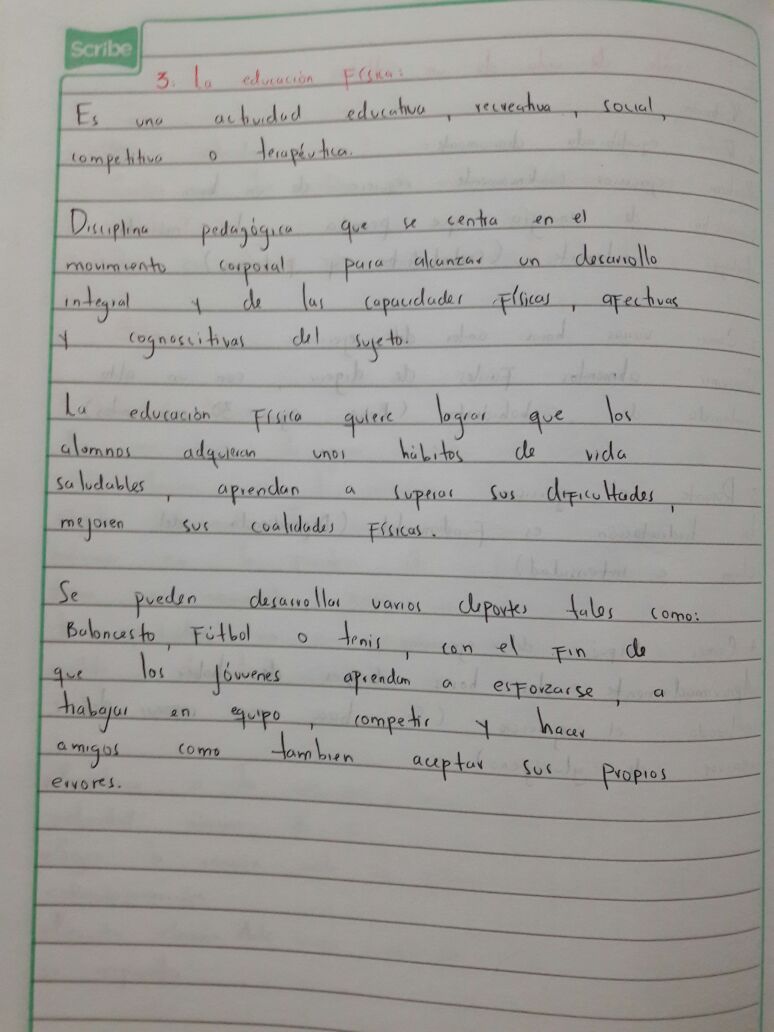 Scribe
3. La educación Física:
Es una actividad educativa, recreativa, social,
competitiva o terapéutica.
Disciplina pedagógica que se centra en el
movimiento corporal para alcanzar un desarrollo
integral y de las capacidades Físicas, afectivas
y cognoscitivas del sujeto.
La educación Física quiere lograr que los
alomnos adquieran unos hábitos de vida
saludables, aprendan a superar sus dificultades,
mejoren sus coalidades Físicas.
Se pueden desarrollar varios deportes tales como:
Baloncesto, Fútbol o tenis, con el fin de
que los jóvvenes aprendan a esforzarse, a
trabajar en equipo, competir y hacer
amigos como tambien aceptar sus propios
errores.